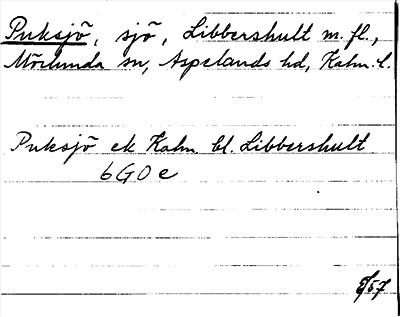 Puksjö, sjö, Libbershult m. fl.,
Mörlunda sn, Aspelands hd, Kalm. l.
Puksjö ek Kalm bl. Libbershult
6G0e
/57